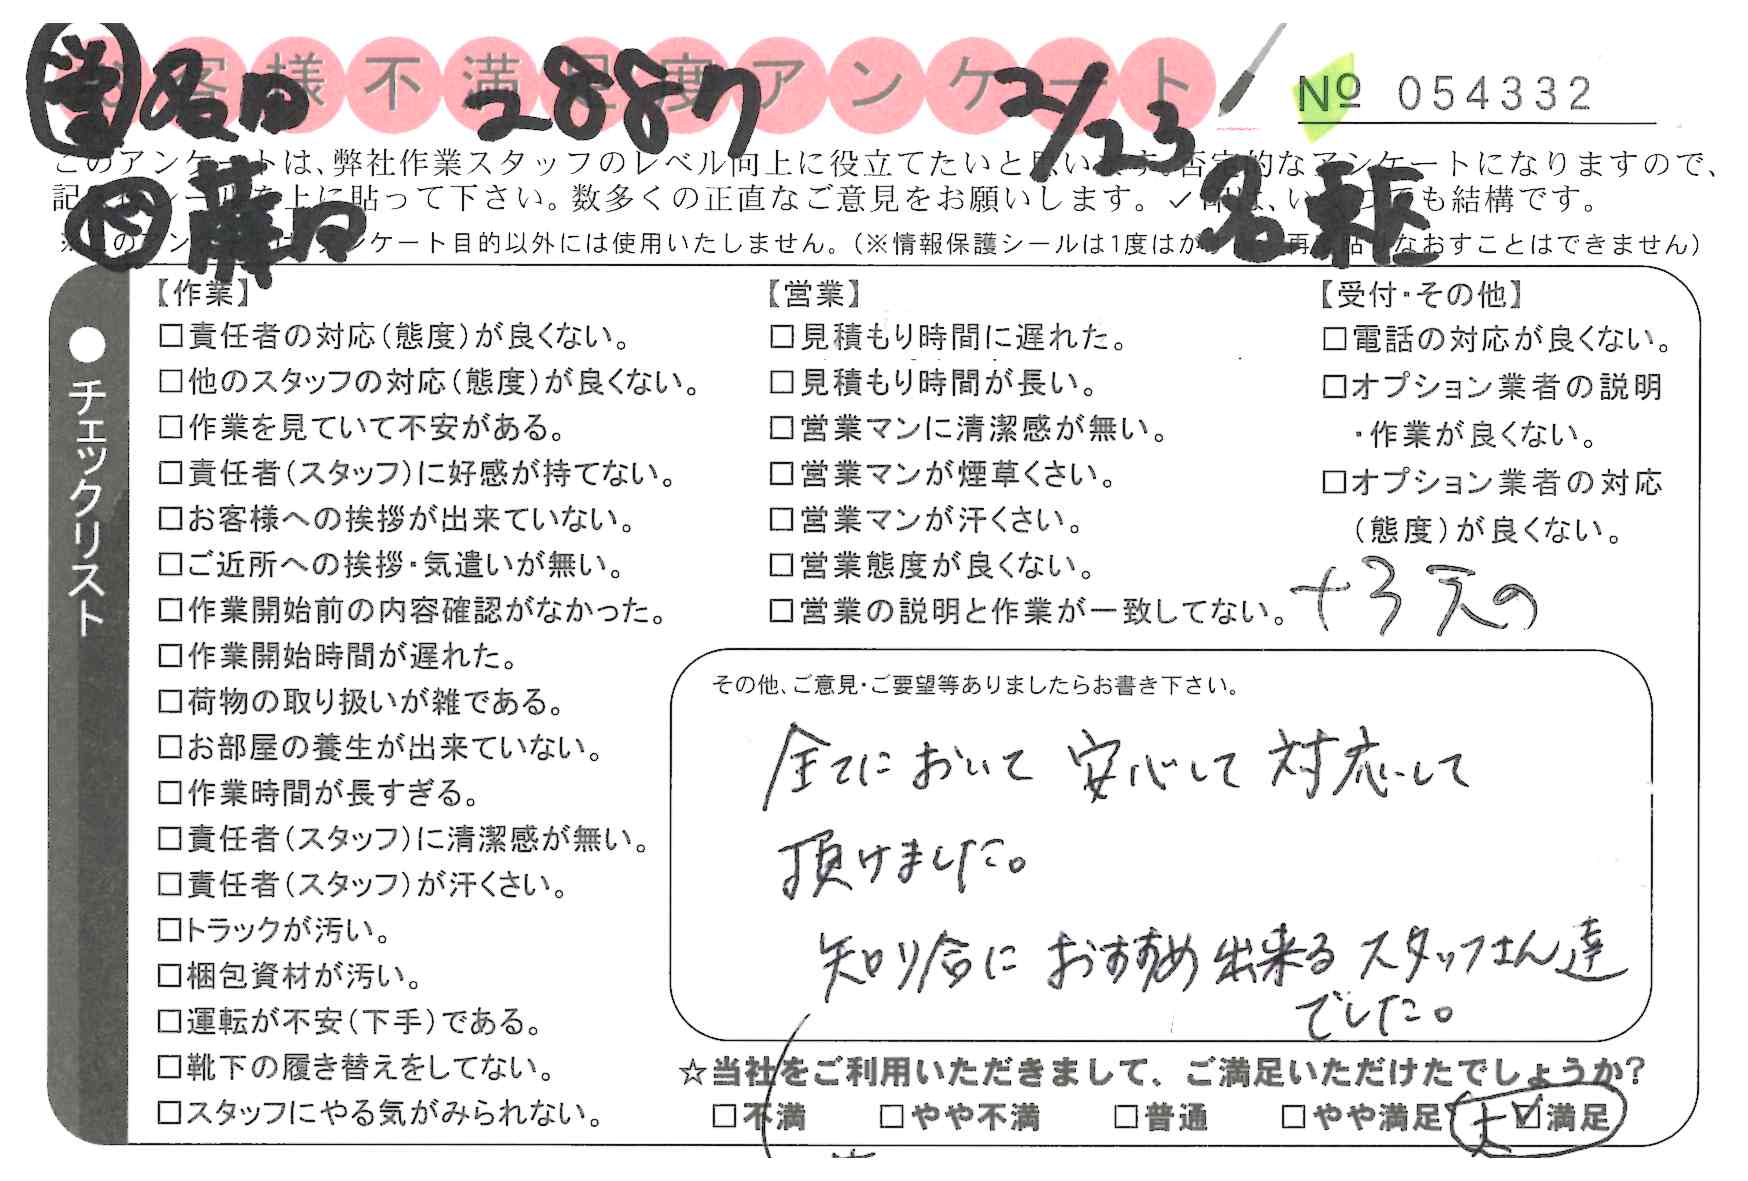 お客様不満足度アンケート
2887
2/23
№ 054332
このアンケートは、弊社作業スタッフのレベル向上に役立てたいと思います。否定的なアンケートになりますので、
上に貼って下さい。数多くの正直なご意見をお願いします。✓
アンケート目的以外には使用いたしません。(※情報保護シールは1度はがすと再度貼りなおすことはできません)
●チェックリスト
【作業】
□責任者の対応(態度)が良くない。
□他のスタッフの対応(態度)が良くない。
□作業を見ていて不安がある。
□責任者(スタッフ)に好感が持てない。
□お客様への挨拶が出来ていない。
□ご近所への挨拶・気遣いが無い。
□作業開始前の内容確認がなかった。
□作業開始時間が遅れた。
□荷物の取り扱いが雑である。
□お部屋の養生が出来ていない。
□作業時間が長すぎる。
□責任者(スタッフ)に清潔感が無い。
□責任者(スタッフ)が汗くさい。
□トラックが汚い。
□梱包資材が汚い。
□運転が不安(下手)である。
□靴下の履き替えをしてない。
□スタッフにやる気がみられない。
【営業】
□見積もり時間に遅れた。
□見積もり時間が長い。
□営業マンに清潔感が無い。
□営業マンが煙草くさい。
□営業マンが汗くさい。
□営業態度が良くない。
□営業の説明と作業が一致してない。
【受付・その他】
□電話の対応が良くない。
□オプション業者の説明
・作業が良くない。
□オプション業者の対応
(態度)が良くない。
その他、ご意見・ご要望等ありましたらお書き下さい。
全てにおいて 安心して 対応して
頂けました。
知り合に おすすめ 出来る スタッフさん達
でした。
☆当社をご利用いただきまして、ご満足いただけたでしょうか?
□不満 □やや不満 □普通 □やや満足 大☑満足